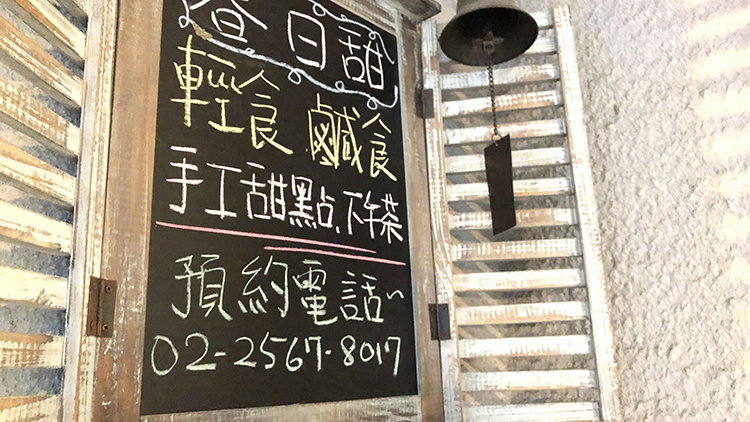 日甜
輕食 鹹食
手工甜點、下午茶
預約電話~
02-2567-8017